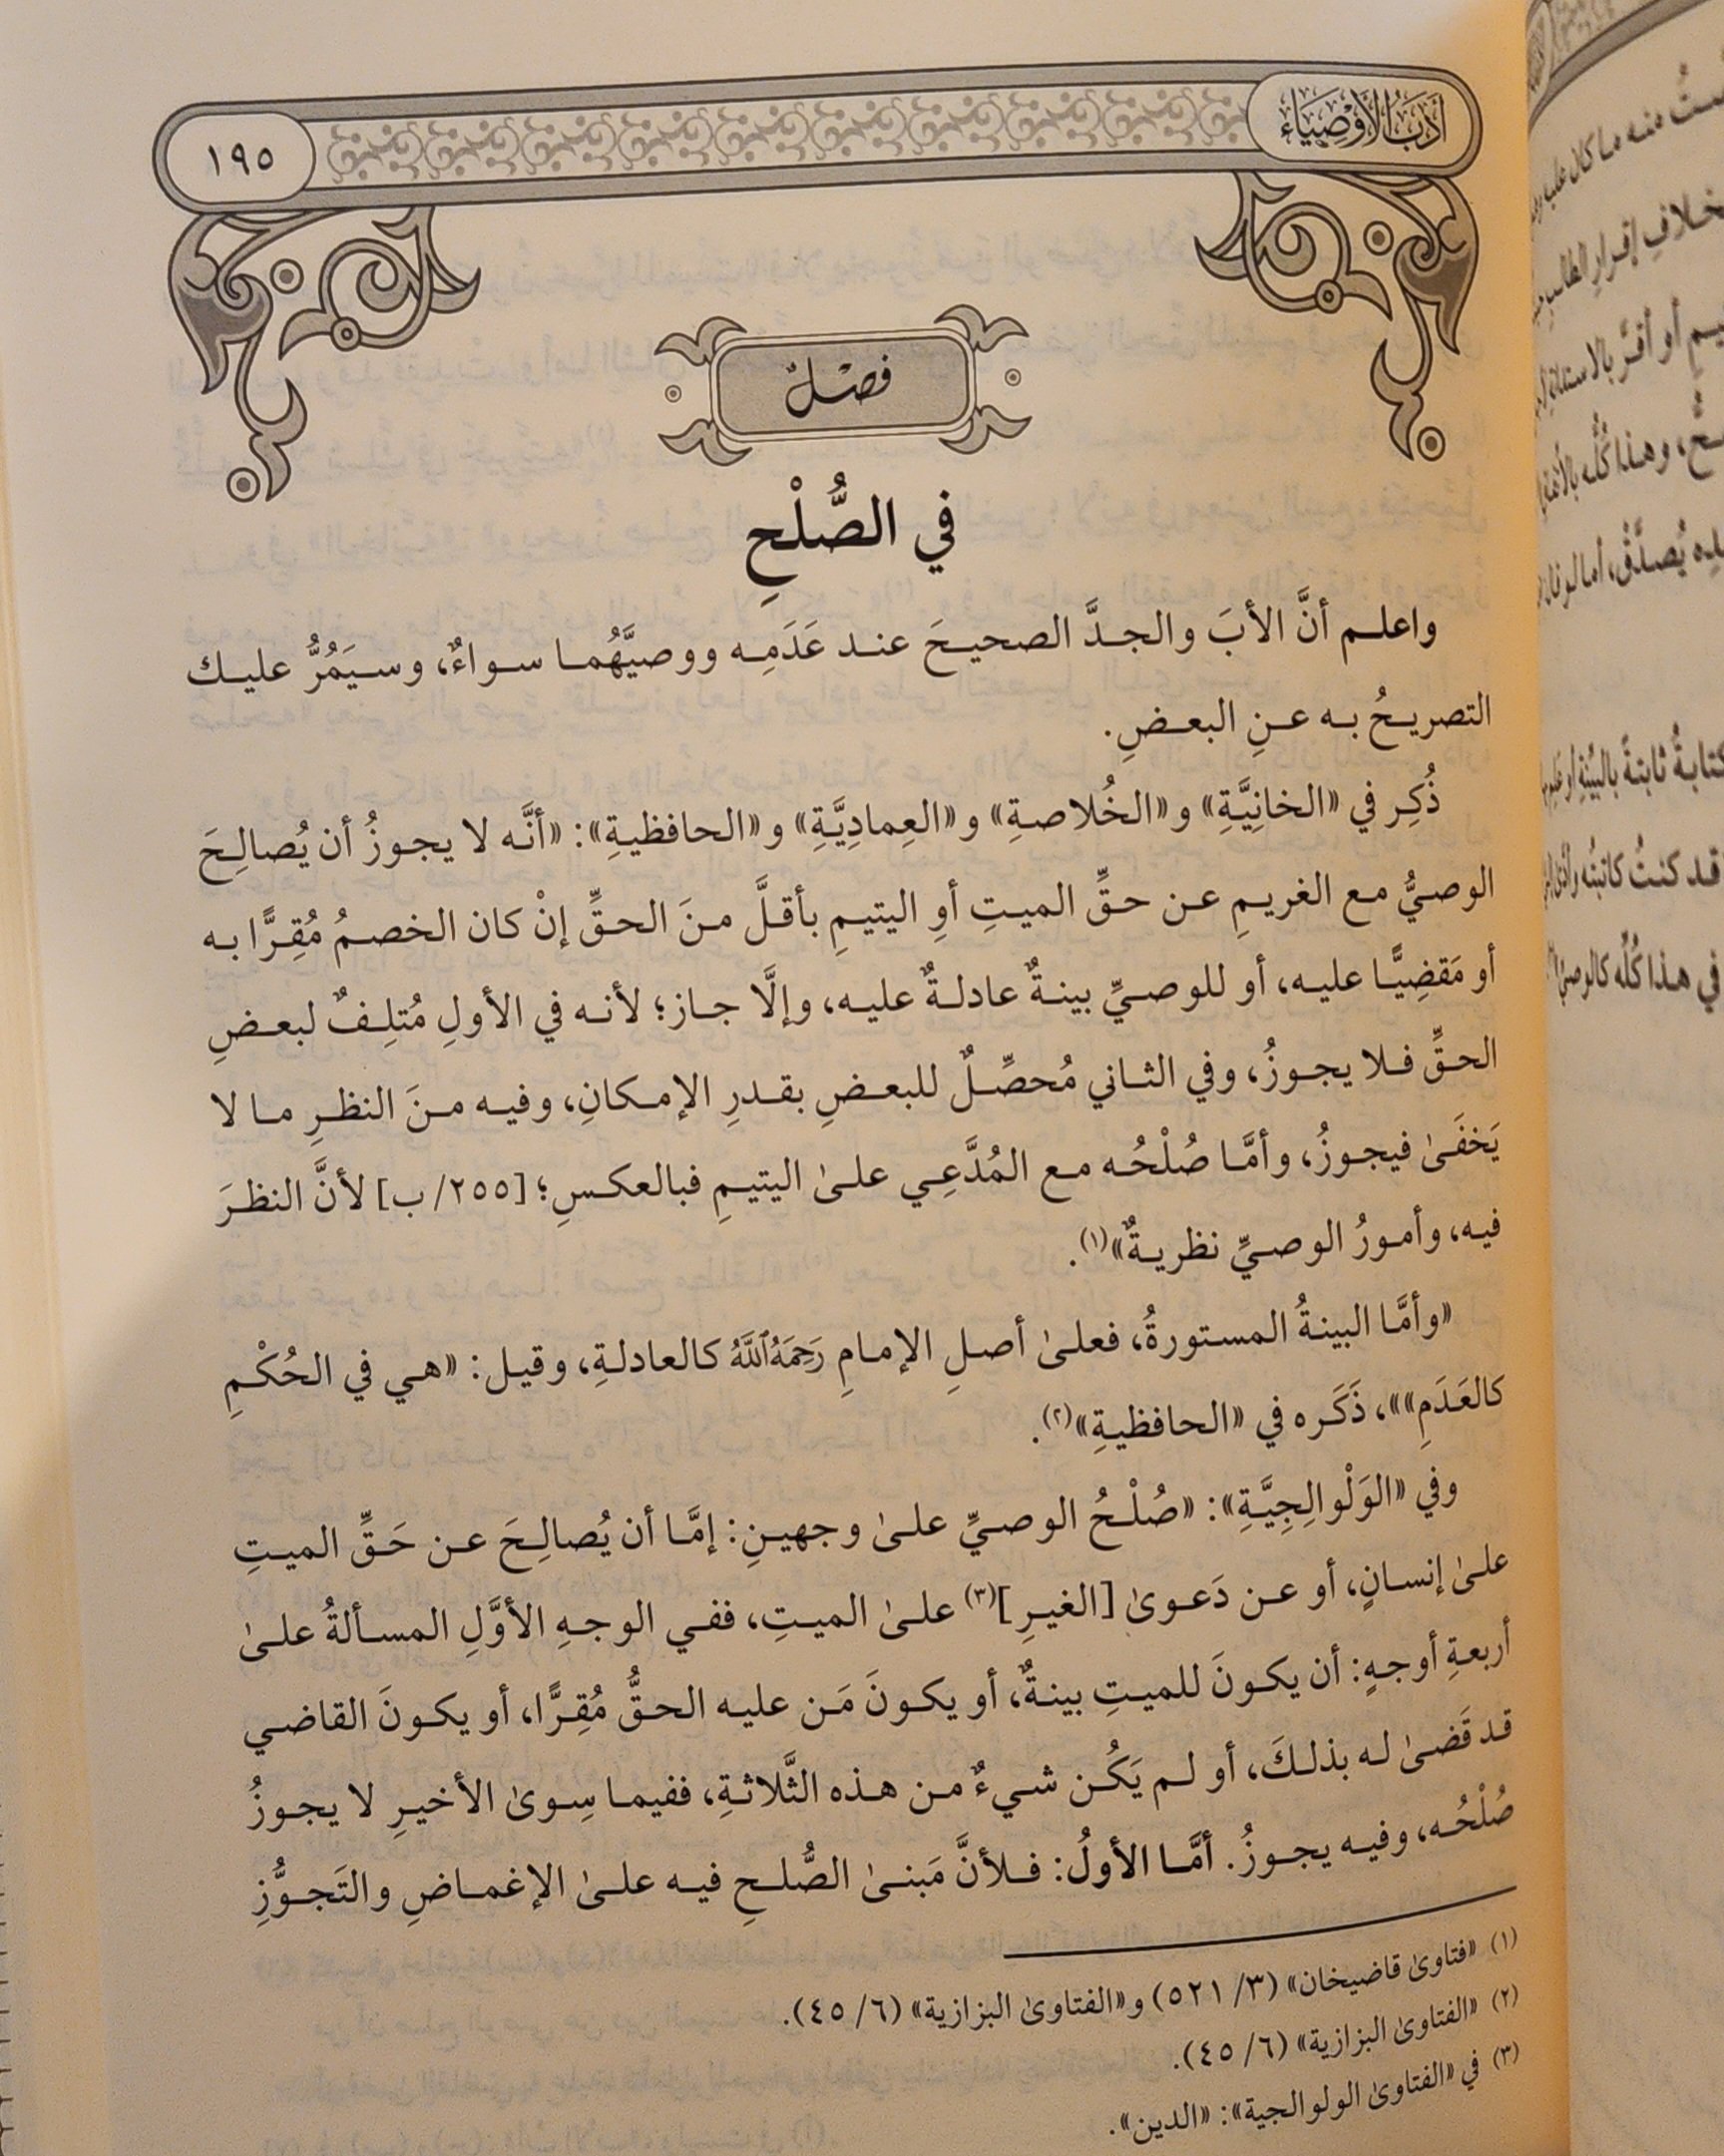 أَدَبُ الأَوْصِيَاء
١٩٥
فصْلٌ
في الصُّلْحِ
واعلم أنَّ الأبَ والجدَّ الصحيحَ عند عَدَمِه ووصيَّهُما سواءٌ، وسيَمُرُّ عليك
التصريحُ به عنِ البعضِ.
ذُكِر في «الخانِيَّةِ» و«الخُلاصةِ» و«العِمادِيَّةِ» و«الحافظيةِ»: «أنَّه لا يجوزُ أن يُصالِحَ
الوصيُّ مع الغريمِ عن حقِّ الميتِ أوِ اليتيمِ بأقلَّ منَ الحقِّ إنْ كان الخصمُ مُقِرًّا به
أو مَقضِيًّا عليه، أو للوصيِّ بينةٌ عادلةٌ عليه، وإلَّا جاز؛ لأنه في الأولِ مُتلِفٌ لبعضِ
الحقِّ فلا يجوزُ، وفي الثاني مُحصِّلٌ للبعضِ بقدرِ الإمكانِ، وفيه منَ النظرِ ما لا
يَخفَىٰ فيجوزُ، وأمَّا صُلْحُه مع المُدَّعِي علىٰ اليتيمِ فبالعكسِ؛ [٢٥٥/ ب] لأنَّ النظرَ
فيه، وأمورُ الوصيِّ نظريةٌ»(١).
«وأمَّا البينةُ المستورةُ، فعلىٰ أصلِ الإمامِ رَحِمَهُ ٱللَّهُ كالعادلةِ، وقيل: «هي في الحُكْمِ
كالعَدَمِ»»، ذَكَره في «الحافظيةِ»(٢).
وفي «الوَلْوالِجِيَّةِ»: «صُلْحُ الوصيِّ علىٰ وجهينِ: إمَّا أن يُصالِحَ عن حَقِّ الميتِ
علىٰ إنسانٍ، أو عن دَعوىٰ [الغيرِ](٣) علىٰ الميتِ، ففي الوجهِ الأوَّلِ المسألةُ علىٰ
أربعةِ أوجهٍ: أن يكونَ للميتِ بينةٌ، أو يكونَ مَن عليه الحقُّ مُقِرًّا، أو يكونَ القاضي
قد قَضىٰ له بذلكَ، أو لم يَكُن شيءٌ من هذه الثَّلاثةِ، ففيما سِوىٰ الأخيرِ لا يجوزُ
صُلْحُه، وفيه يجوزُ. أمَّا الأولُ: فلأنَّ مَبنىٰ الصُّلحِ فيه علىٰ الإغماضِ والتَجوُّزِ
(١) «فتاوىٰ قاضيخان» (٣/ ٥٢١) و«الفتاوىٰ البزازية» (٦/ ٤٥).
(٢) «الفتاوىٰ البزازية» (٦/ ٤٥).
(٣) في «الفتاوىٰ الولوالجية»: «الدين».